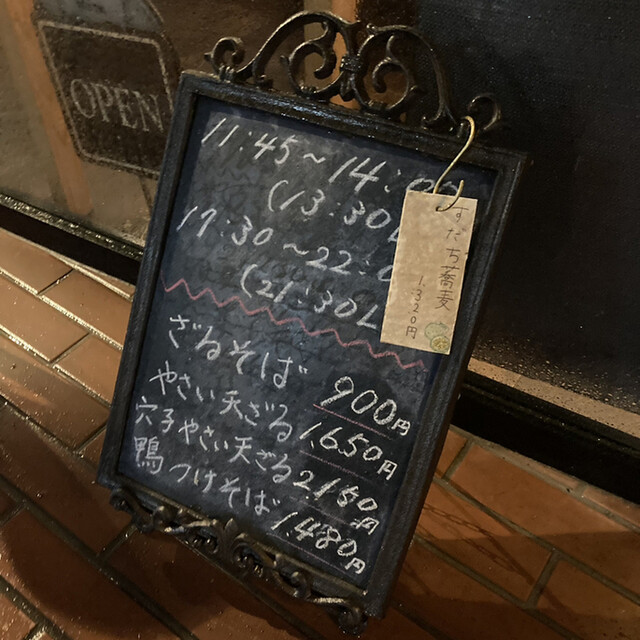 OPEN
11:45~14:00
(13:30L
17:30~22:0
(21:30L
ざるそば 900円
やさい天ざる 1,650円
穴子やさい天ざる 2,180円
鴨つけそば 1,480円
すだち蕎麦
1,320円